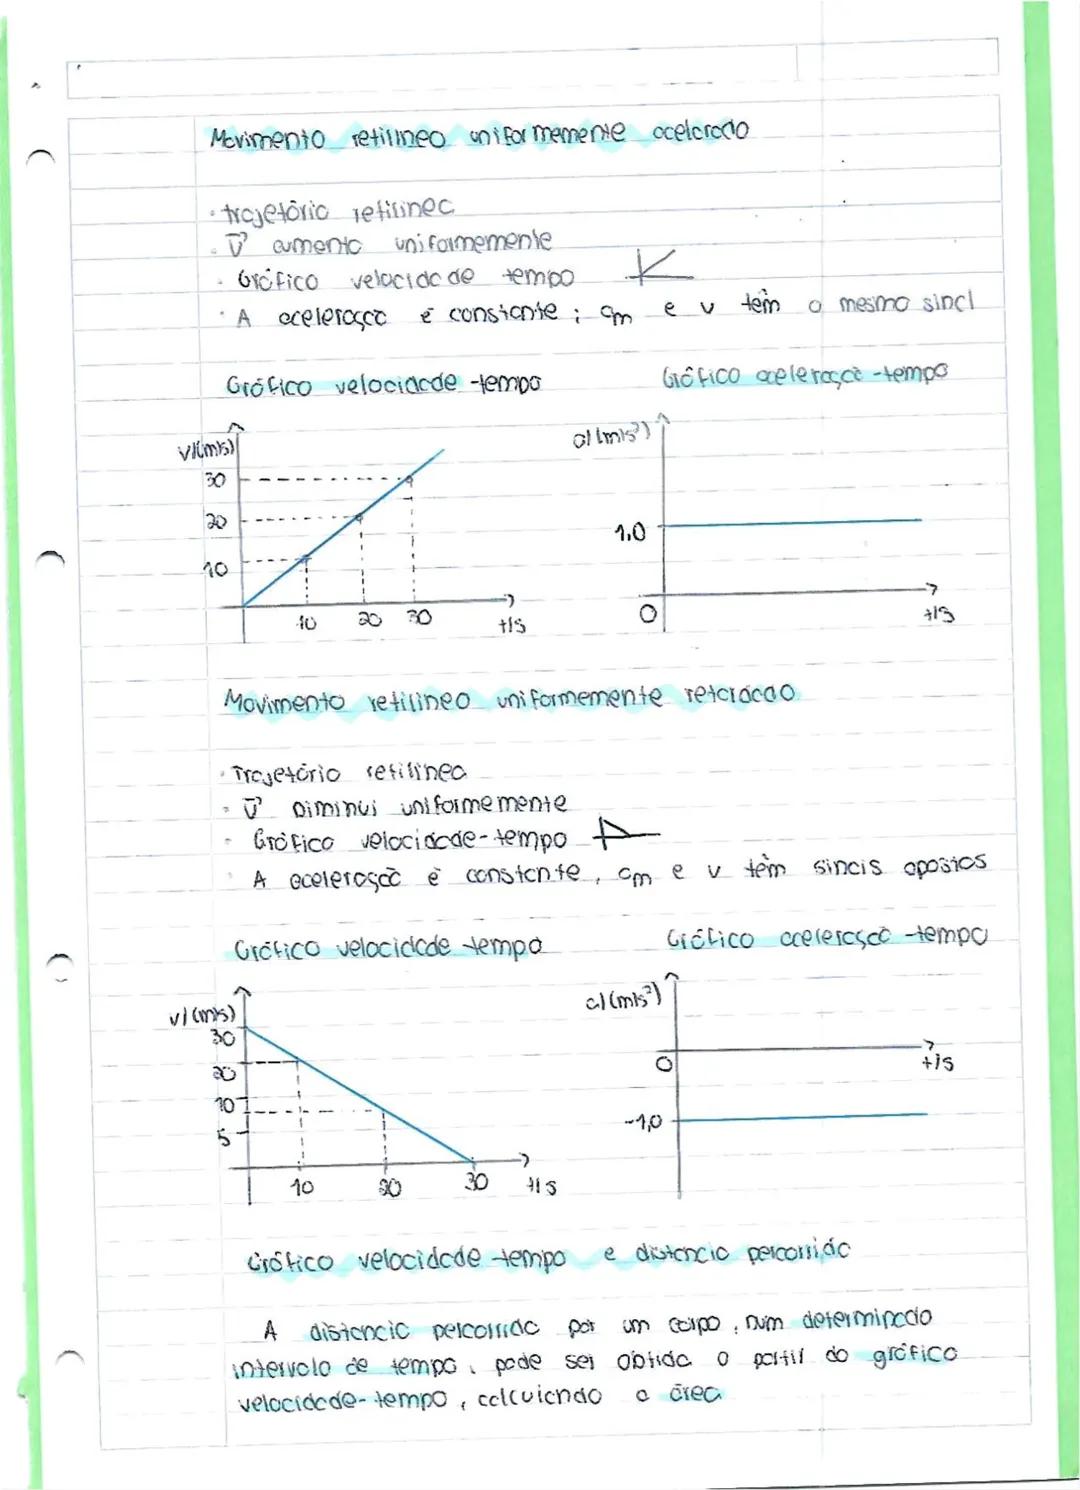 Movimento retilíneo uniformemente acelerado
• trajetória retilínea
• v⃗ aumenta uniformemente
• Gráfico velocidade tempo
• A aceleração é constante ; am e v têm o mesmo sinal
Gráfico velocidade-tempo
Gráfico aceleração-tempo
v/(m/s)
30
20
10
10 20 30
t/s
a/(m/s²)
1,0
0
t/s
Movimento retilíneo uniformemente retardado
• Trajetória retilínea
• v⃗ Diminui uniformemente
• Gráfico velocidade-tempo
• A aceleração é constante, am e v têm sinais opostos
Gráfico velocidade-tempo
Gráfico aceleração-tempo
v/(m/s)
30
20
10
5
10 20 30 t/s
a/(m/s²)
0
t/s
-1,0
Gráfico velocidade-tempo e distância percorrida
A distância percorrida por um corpo, num determinado
intervalo de tempo, pode ser obtida a partir do gráfico
velocidade-tempo, calculando a área